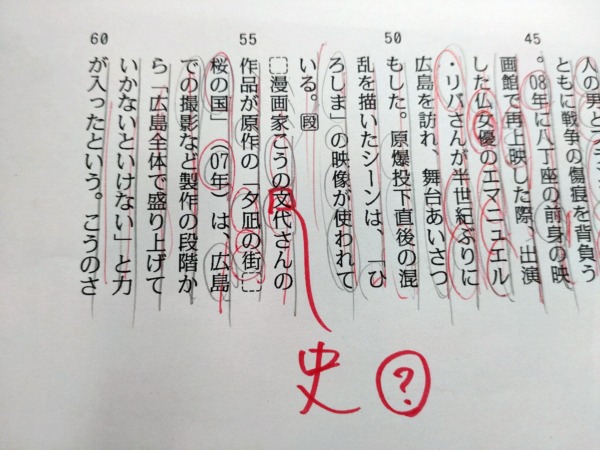 45
50
55
60
人の男とフラン
ともに戦争の傷痕を背負う
。08年に八丁座の前身の映
画館で再上映した際、出演
した仏女優のエマニュエル
・リバさんが半世紀ぶりに
広島を訪れ、舞台あいさつ
もした。原爆投下直後の混
乱を描いたシーンは、「ひ
ろしま」の映像が使われて
いる。段
漫画家こうの文代さんの
作品が原作の「夕凪の街
桜の国」(07年)は、広島
での撮影など製作の段階か
ら「広島全体で盛り上げて
いかないといけない」と力
が入ったという。こうのさ
史 ?